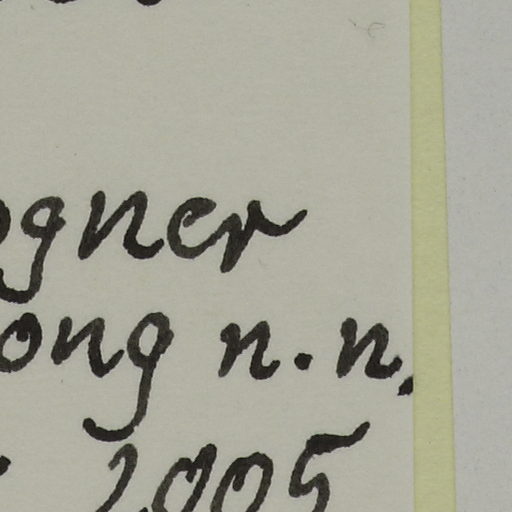 ogner
ong n.n.
2005